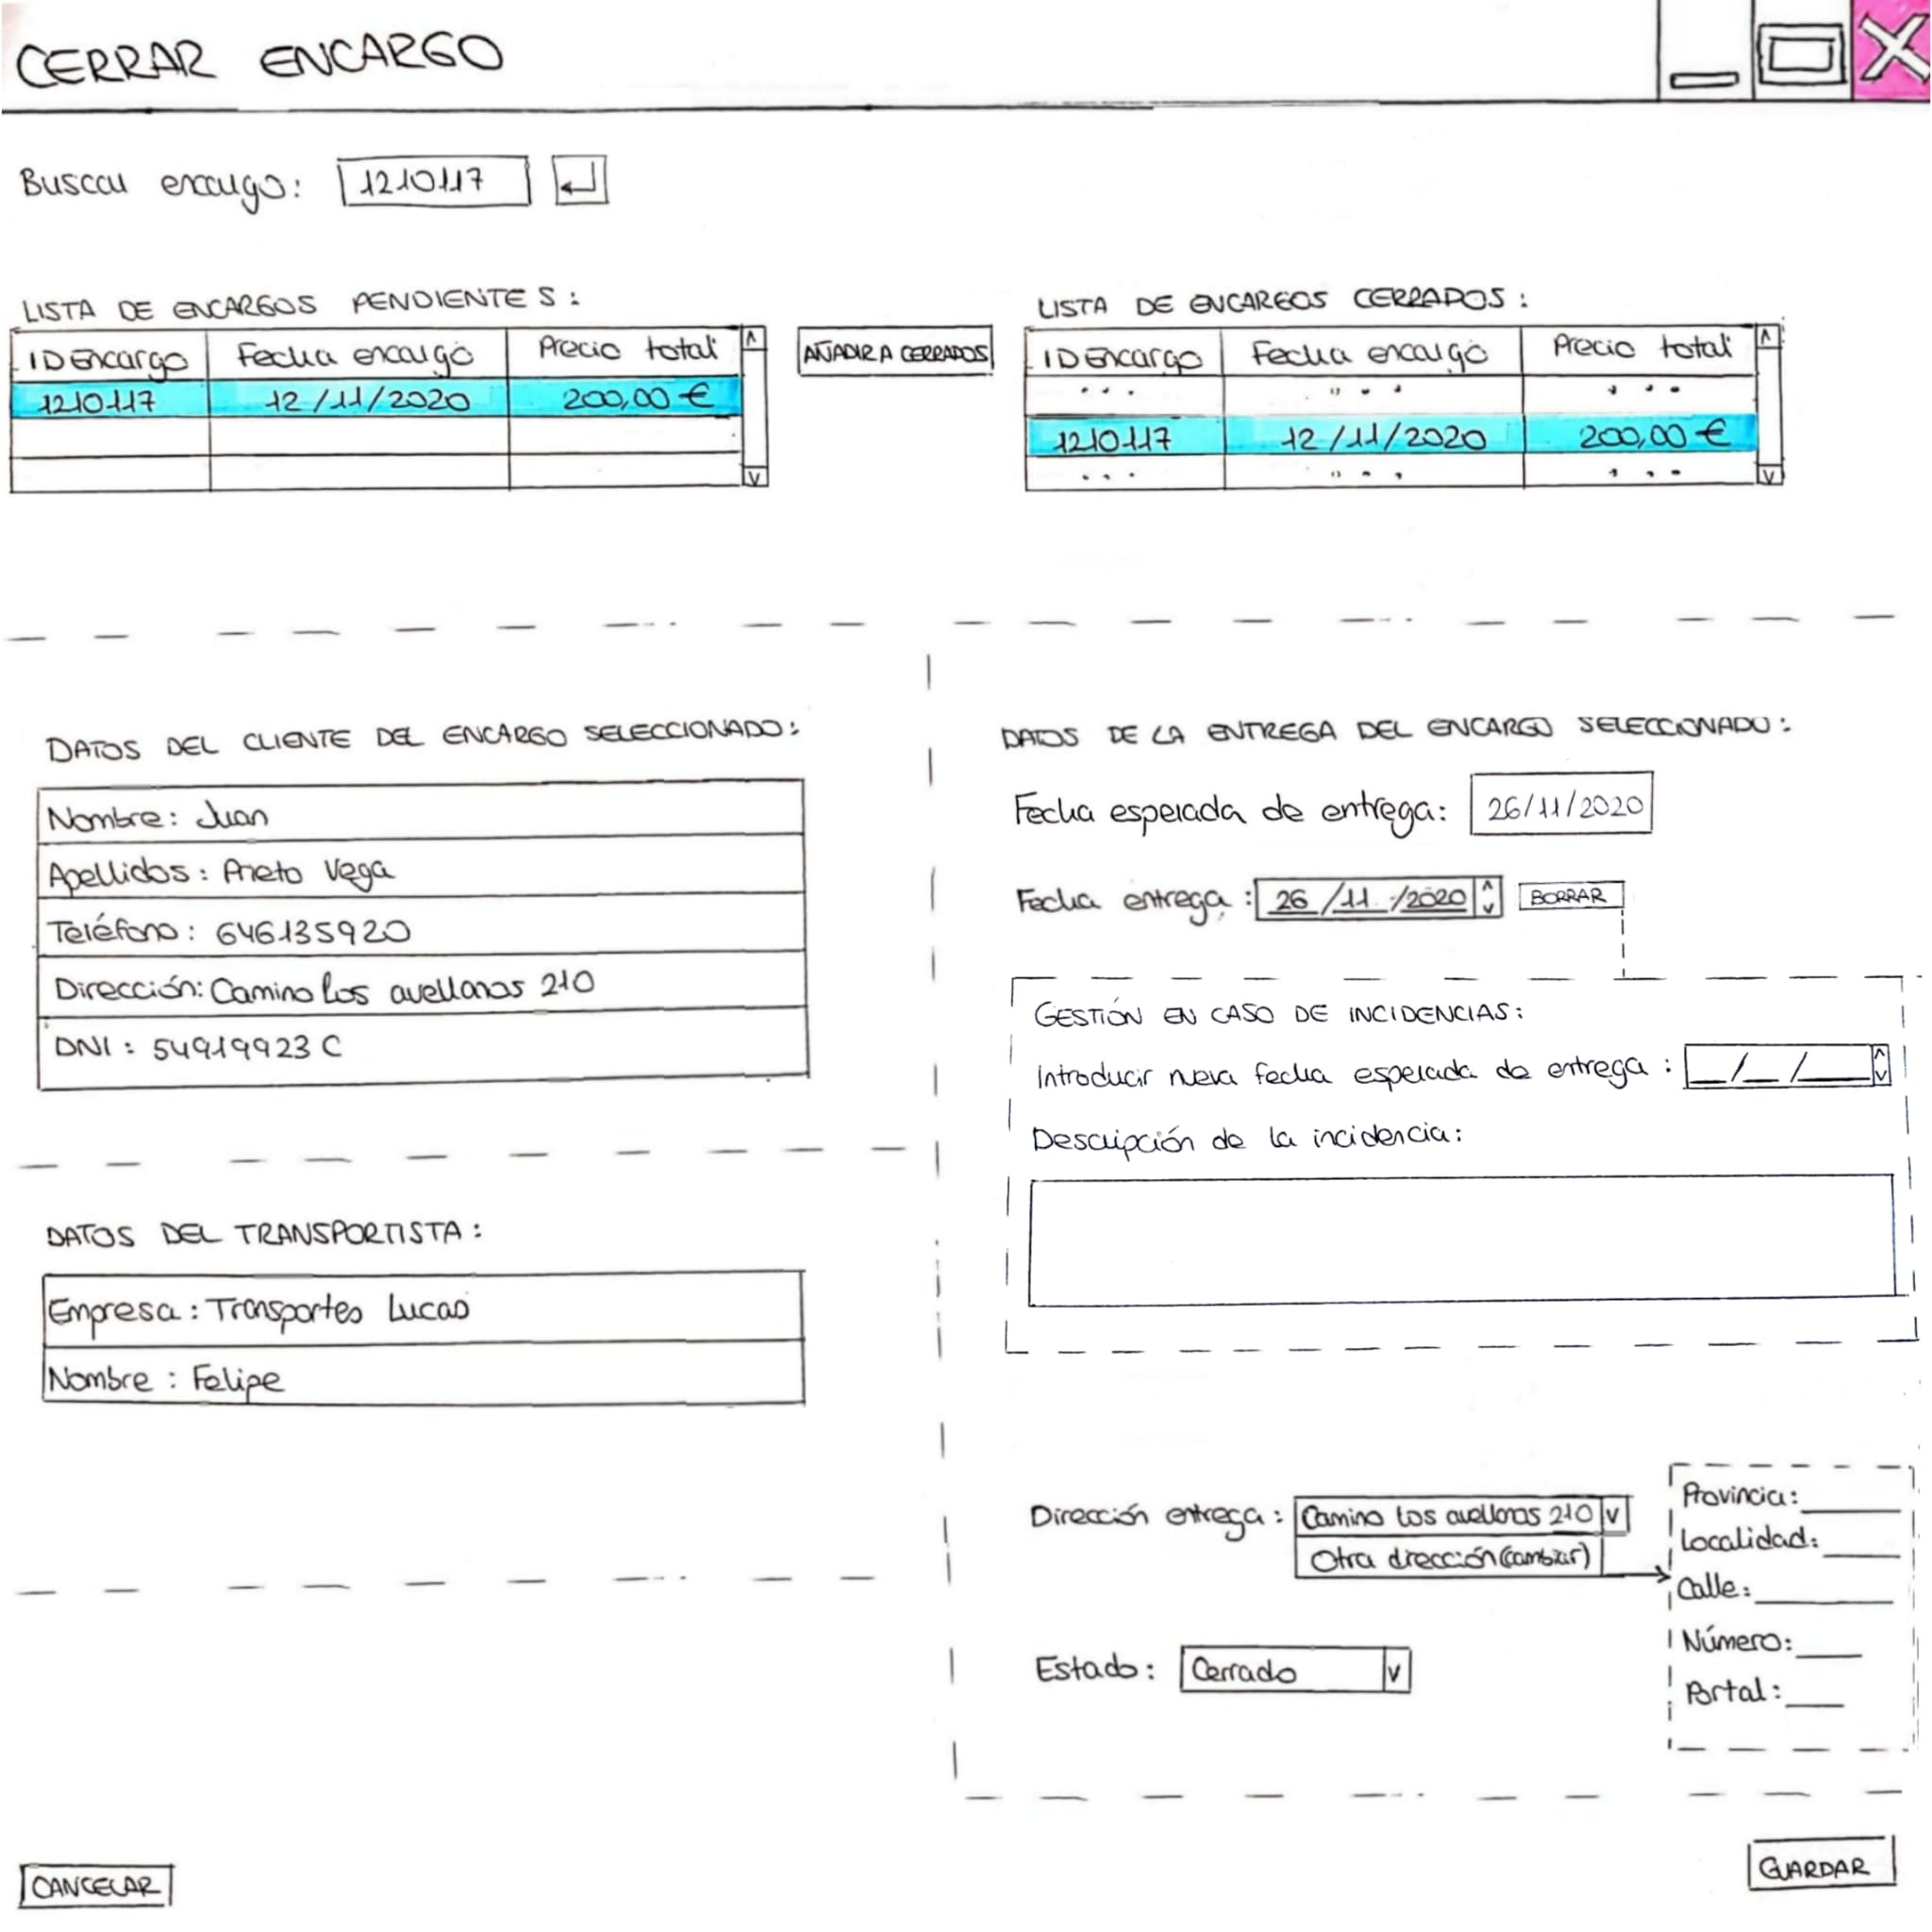 CERRAR ENCARGO
Buscar encargo: 1210117
LISTA DE ENCARGOS PENDIENTES:
ID Encargo Fecha encargo Precio total
1210117 12/11/2020 200,00 €
AÑADIR A CERRADOS
LISTA DE ENCARGOS CERRADOS:
ID Encargo Fecha encargo Precio total
... ... ...
1210117 12/11/2020 200,00 €
... ... ...
DATOS DEL CLIENTE DEL ENCARGO SELECCIONADO:
Nombre: Juan
Apellidos: Prieto Vega
Teléfono: 646135920
Dirección: Camino los avellanos 210
DNI: 54919923 C
DATOS DEL TRANSPORTISTA:
Empresa: Transportes Lucas
Nombre: Felipe
DATOS DE LA ENTREGA DEL ENCARGO SELECCIONADO:
Fecha esperada de entrega: 26/11/2020
Fecha entrega: 26/11/2020 BORRAR
GESTIÓN EN CASO DE INCIDENCIAS:
Introducir nueva fecha esperada de entrega: __/__/____
Descripción de la incidencia:
Dirección entrega: Camino los avellanos 210 v
Otra dirección (cambiar)
Provincia: ____
Localidad: ____
Calle: ____
Número: ____
Portal: ____
Estado: Cerrado v
CANCELAR
GUARDAR